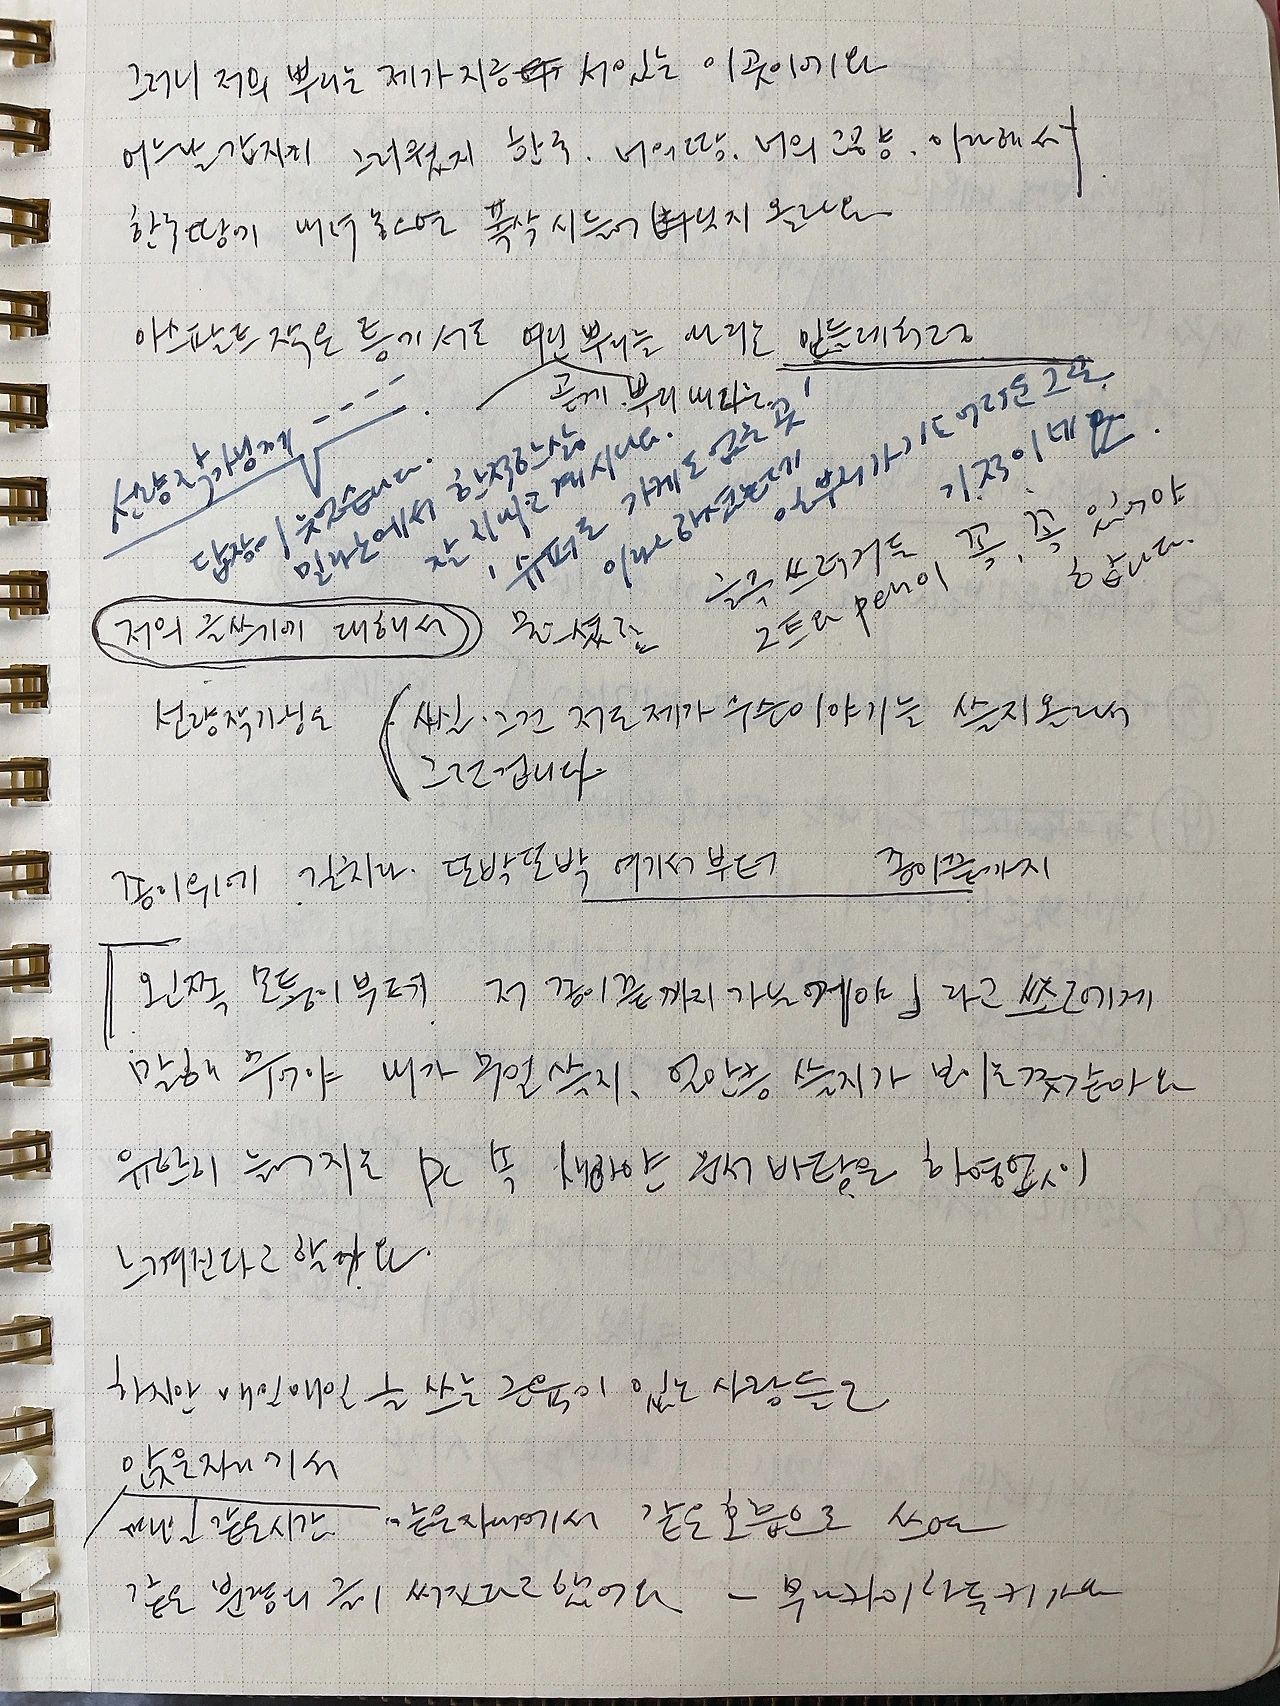 그러니 저의 뿌리는 제가 지금 서있는 이곳이에요
어느날 갑자기 그리웠지 한국. 너의 땅. 너의 공항. 이라해서
한국땅에 내려놓으면 폭삭 시들어버릴지 몰라요
아스팔트 작은 틈기서도 여린 뿌리를 내리는 민들레처럼
곧게 뿌리 내리는
선량작가님께
답장이 늦었습니다.
밀라노에서 한적한 삶
잘 지내고 계시나요.
슈퍼도 가게도 없는 곳
이라 하셨는데
와이파이가 기도 어려운 그곳.
기적이네요.
글을 쓰려거든 꼭, 꼭 있어야
그트라 pen이 합니다.
저의 글쓰기에 대해서 물으셨죠
선량작가님도 (사실 그건 저도 제가 무슨이야기를 쓸지 몰라서
그런겁니다.
종이위에 글씨가 또박또박 여기서부터 종이끝까지
「왼쪽 모퉁이부터 저 종이끝까지가 노예야」라고 스스로에게
말해 두어야 내가 무얼 쓸지, 얼만큼 쓸지가 보이는것같아요
유난히 늘어지는 pc 속 새하얀 문서 바탕은 하염없이
느껴진다고 할까요.
하지만 매일매일 글 쓰는 근육이 있는 사람들은
앉은자리에서
매일 같은시간 같은자리에서 같은호흡으로 쓰면
같은 분량의 글이 써진다고 했어요 – 무라카미 하루키가요